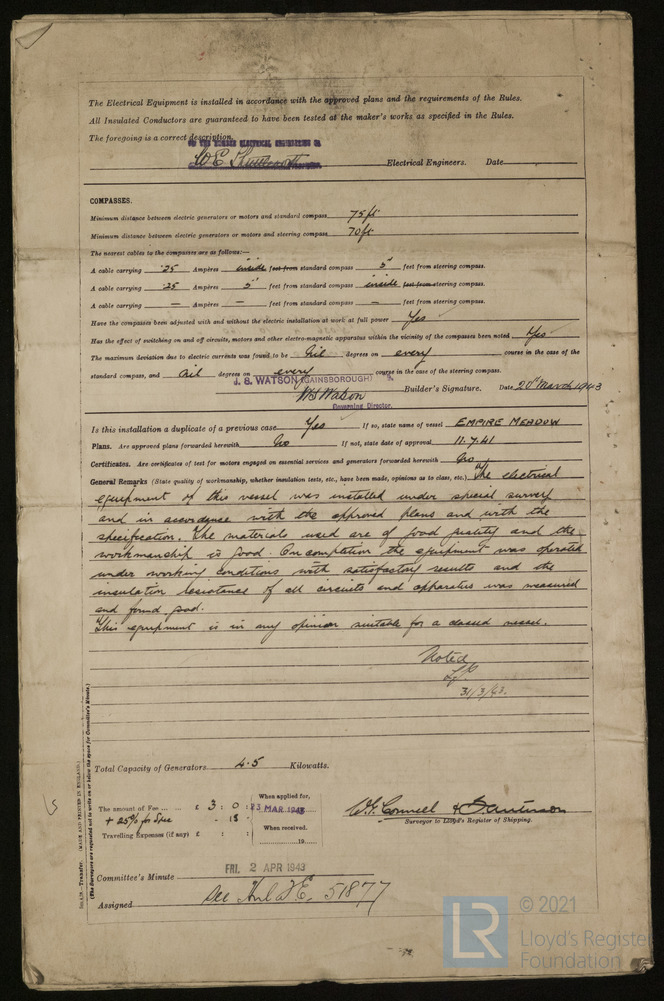 The Electrical Equipment is installed in accordance with the approved plans and the requirements of the Rules.
All Insulated Conductors are guaranteed to have been tested at the maker's works as specified in the Rules.
The foregoing is a correct description.
ELECTRICAL ENGINEERING Co.
Electrical Engineers. Date
COMPASSES.
Minimum distance between electric generators or motors and standard compass 75 ft
Minimum distance between electric generators or motors and steering compass 70 ft
The nearest cables to the compasses are as follows:—
A cable carrying .25 Ampères inside feet from standard compass 5' feet from steering compass.
A cable carrying .25 Ampères 5' feet from standard compass inside feet from steering compass.
A cable carrying — Ampères — feet from standard compass — feet from steering compass.
Have the compasses been adjusted with and without the electric installation at work at full power Yes
Has the effect of switching on and off circuits, motors and other electro-magnetic apparatus within the vicinity of the compasses been noted Yes
The maximum deviation due to electric currents was found to be Nil degrees on every course in the case of the
standard compass, and nil degrees on every course in the case of the steering compass.
J. S. WATSON (GAINSBOROUGH)
Builder's Signature. Date 20th March 1943
Governing Director.
Is this installation a duplicate of a previous case Yes If so, state name of vessel EMPIRE MEADOW
Plans. Are approved plans forwarded herewith No If not, state date of approval 11.7.41
Certificates. Are certificates of test for motors engaged on essential services and generators forwarded herewith No
General Remarks (State quality of workmanship, whether insulation tests, etc., have been made, opinions as to class, etc.) The electrical
equipment of this vessel was installed under special survey
and in accordance with the approved plans and with the
specification. The materials used are of good quality and the
workmanship is good. On completion the equipment was operated
under working conditions with satisfactory results and the
insulation resistance of all circuits and apparatus was measured
and found good.
This equipment is in my opinion suitable for a classed vessel.
Noted
31/3/43.
Total Capacity of Generators 4.5 Kilowatts.
The amount of Fee £ 3 : 0 :
When applied for,
23 MAR 1943
+ 25% for Spec - 15 -
Travelling Expenses (if any) £ : :
When received,
19
Surveyor to Lloyd's Register of Shipping.
FRI. 2 APR 1943
Committee's Minute
Assigned See Hul F.E. 51877
(MADE AND PRINTED IN ENGLAND.)
(The Surveyors are requested not to write on or below the space for Committee's Minute.)
LR
© 2021
Lloyd's Register
Foundation